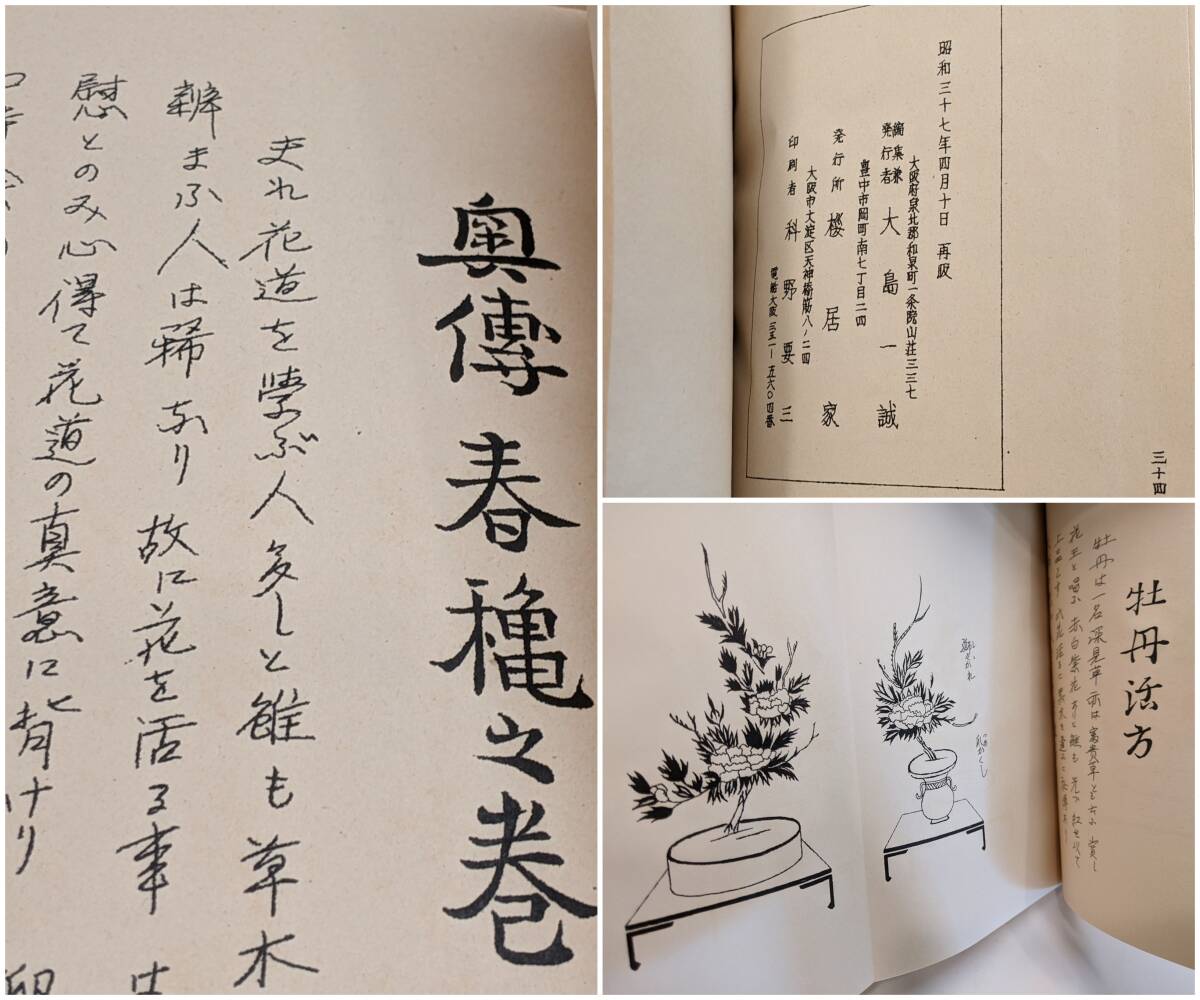 奥傳 春龝之巻
夫れ花道を学ぶ人多しと雖も草木
辨まふ人は稀なり 故に花を活る事は
慰とのみ心得て花道の真意に背けり
昭和三十七年四月十日 再版
大阪府泉北郡和泉町一条院山荘三三七
編集兼
発行者 大島一誠
豊中市岡町南七丁目二四
発行所 桜居家
大阪市大淀区天神橋筋八ノ二四
印刷者 科野要三
電話大阪 三五一-五六〇四番
三十四
牡丹活方
牡丹は一名深見草 亦は富貴草とも云ふ 賞し
花王と唱ふ 赤白紫花ありと雖も 先づ紅を以て